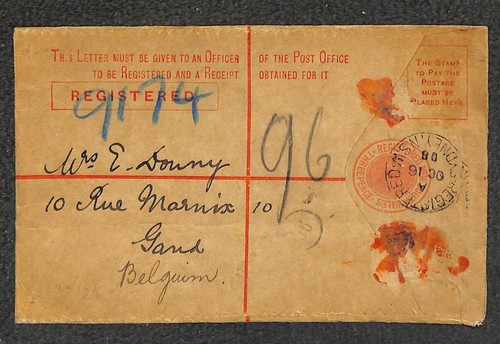 THIS LETTER MUST BE GIVEN TO AN OFFICER OF THE POST OFFICE
TO BE REGISTERED AND A RECEIPT OBTAINED FOR IT
REGISTERED
9174
THE STAMP
TO PAY THE
POSTAGE
MUST BE
PLACED HERE.
96
Mrs E. Donny
10 Rue Marnix 10
Gand
Belguim.
REGISTERED SYDNEY N.S.W.
A
OC 16
08
WALES
THREEPENCE